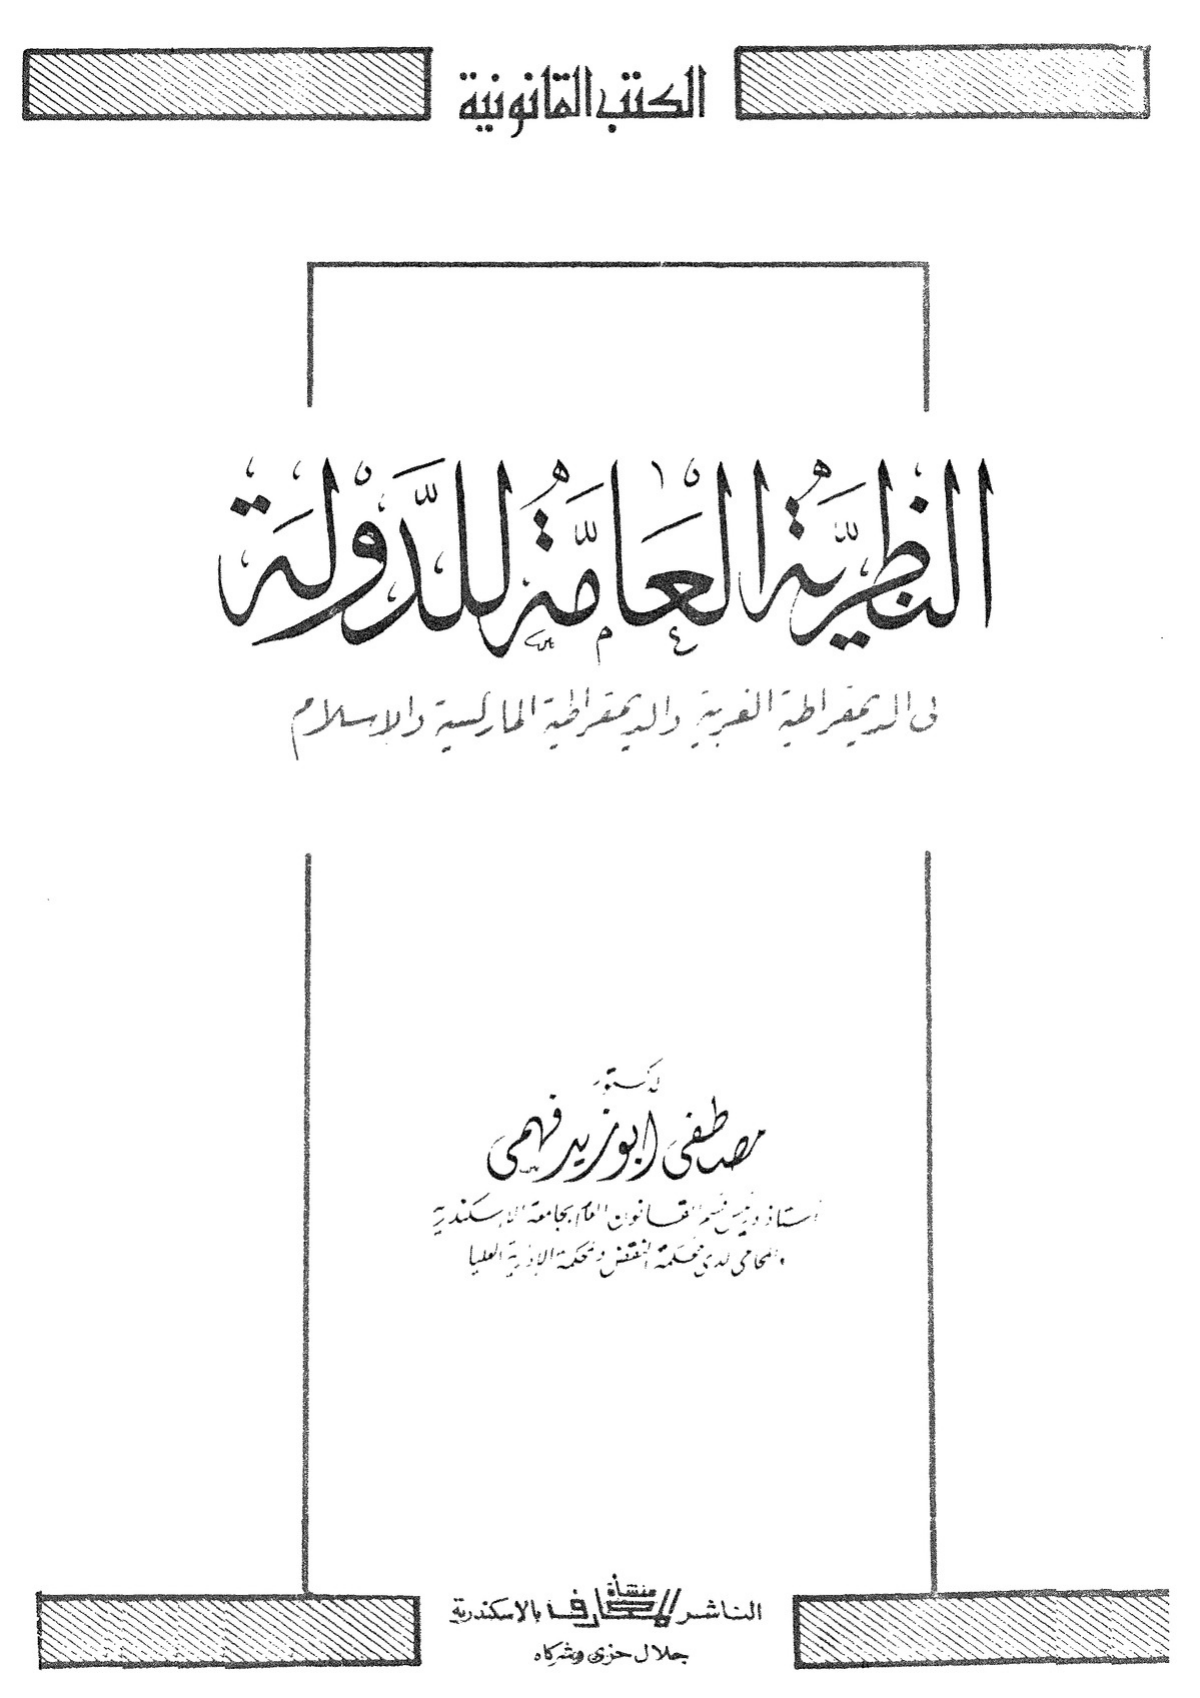 الكتب القانونية
النظرية العامة للدولة
فى الديمقراطية الغربية والديمقراطية الماركسية والإسلام
دكتور
مصطفى ابوزيد فهمى
أستاذ ورئيس قسم القانون العام بجامعة الإسكندرية
والمحامى لدى محكمة النقض والمحكمة الإدارية العليا
الناشر منشأة المعارف بالاسكندرية
جلال حزى وشركاه